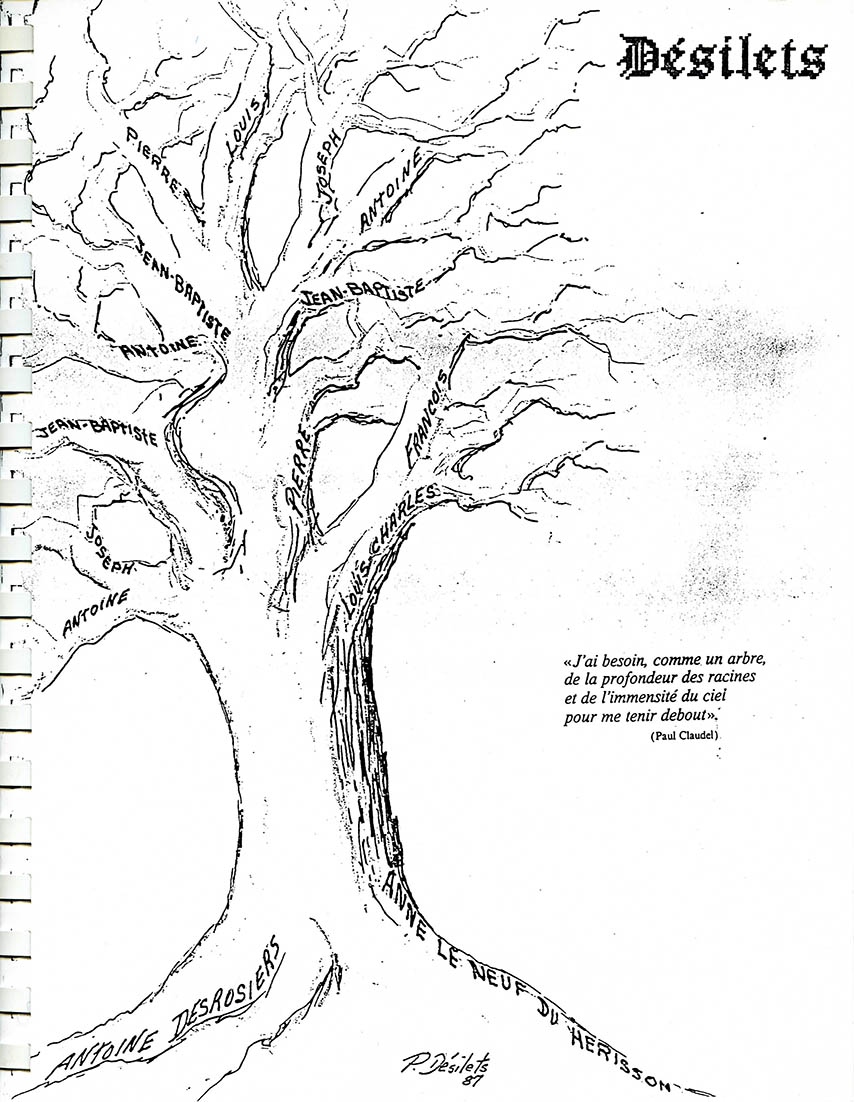 Désilets
LOUIS
PIERRE
JOSEPH
ANTOINE
JEAN-BAPTISTE
JEAN-BAPTISTE
ANTOINE
FRANCOIS
JEAN-BAPTISTE
PIERRE
LOUIS CHARLES
JOSEPH
ANTOINE
«J'ai besoin, comme un arbre,
de la profondeur des racines
et de l'immensité du ciel
pour me tenir debout».
(Paul Claudel)
ANNE LE NEUF DU HERISSON
ANTOINE DESROSIERS
P. Désilets
87